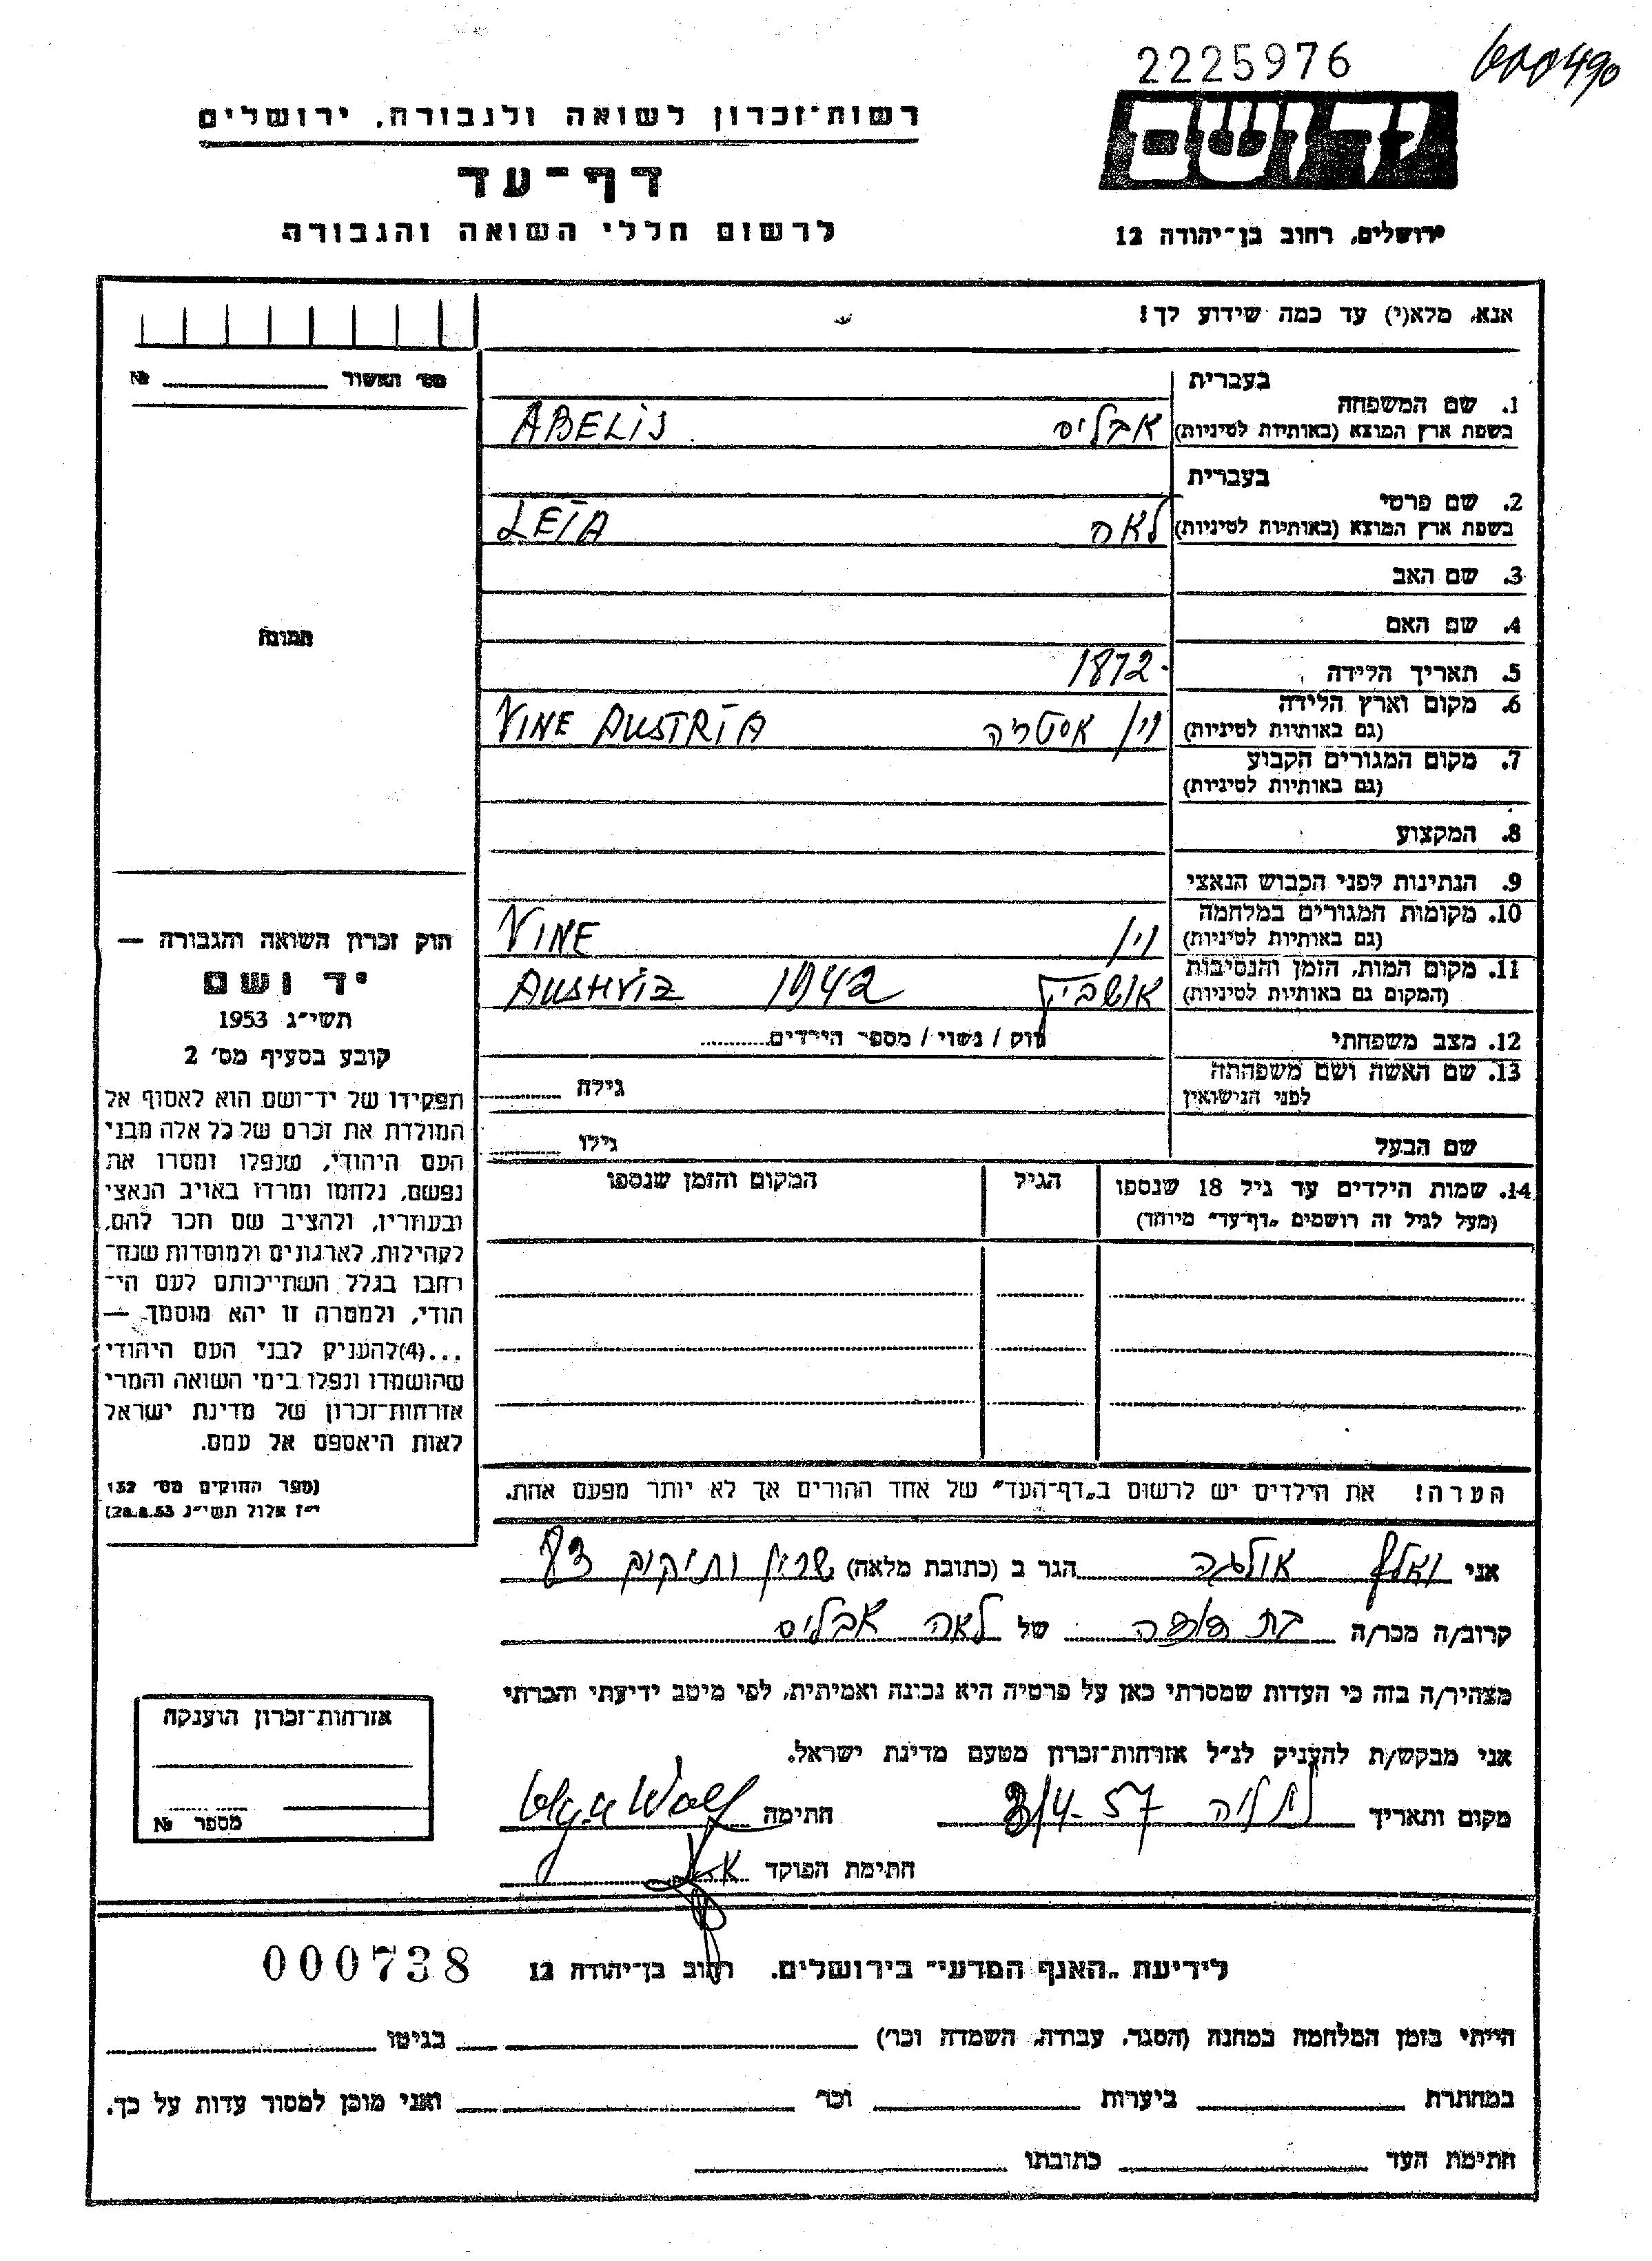 2225976
600490
רשות־זכרון לשואה ולגבורה, ירושלים
יד ושם
דף־עד
לרשום חללי השואה והגבורה
ירושלים, רחוב בן־יהודה 12
אנא, מלא(י) עד כמה שידוע לך!
מס׳ האשור № 
בעברית
1. שם המשפחה
בשפת ארץ המוצא (באותיות לטיניות) אבליס ABELIS
בעברית
2. שם פרטי
בשפת ארץ המוצא (באותיות לטיניות) לאה LEIA
3. שם האב
4. שם האם
תמונה
5. תאריך הלידה 1872
6. מקום וארץ הלידה
(גם באותיות לטיניות) וין אסטריה VINE AUSTRIA
7. מקום המגורים הקבוע
(גם באותיות לטיניות)
8. המקצוע
9. הנתינות לפני הכבוש הנאצי
10. מקומות המגורים במלחמה
(גם באותיות לטיניות) וין VINE
11. מקום המות, הזמן והנסיבות
(המקום גם באותיות לטיניות) 1942
12. מצב משפחתי רוק / נשוי / מספר הילדים
13. שם האשה ושם משפחתה
לפני הנישואין גילה
שם הבעל גילו
14. שמות הילדים עד גיל 18 שנספו הגיל המקום והזמן שנספו
(מעל לגיל זה רושמים „דף־עד״ מיוחד)
הערה! את הילדים יש לרשום ב„דף־העד״ של אחד ההורים אך לא יותר מפעם אחת.
חוק זכרון השואה והגבורה —
יד ושם
תשי״ג 1953
קובע בסעיף מס׳ 2
תפקידו של יד־ושם הוא לאסוף אל
המולדת את זכרם של כל אלה מבני
העם היהודי, שנפלו ומסרו את
נפשם, נלחמו ומרדו באויב הנאצי
ובעוזריו, ולהציב שם וזכר להם,
לקהילות, לארגונים ולמוסדות שנח־
רבו בגלל השתייכותם לעם הי־
הודי, ולמטרה זו יהא מוסמך —
...(4)להעניק לבני העם היהודי
שהושמדו ונפלו בימי השואה והמרי
אזרחות־זכרון של מדינת ישראל
לאות היאספם אל עמם.
(ספר החוקים מס׳ 132
י״ז אלול תשי״ג 28.8.53)
אני ואלף אולגה הגר ב (כתובת מלאה) שרון ותיקים
קרוב/ה מכר/ה בת דודה של לאה אבליס
מצהיר/ה בזה כי העדות שמסרתי כאן על פרטיה היא נכונה ואמיתית, לפי מיטב ידיעתי והכרתי
אני מבקש/ת להעניק לנ״ל אזרחות־זכרון מטעם מדינת ישראל.
מקום ותאריך נתניה 3/4-57 חתימה Olga Wolf
חתימת הפוקד
אזרחות־זכרון הוענקה
מספר №
לידיעת „האגף המדעי״ בירושלים, רחוב בן־יהודה 12 000738
הייתי בזמן המלחמה במחנה (הסגר, עבודה, השמדה וכר׳) בגיטו
במחתרת ביערות וכר׳ ואני מוכן למסור עדות על כך.
חתימת העד כתובתו